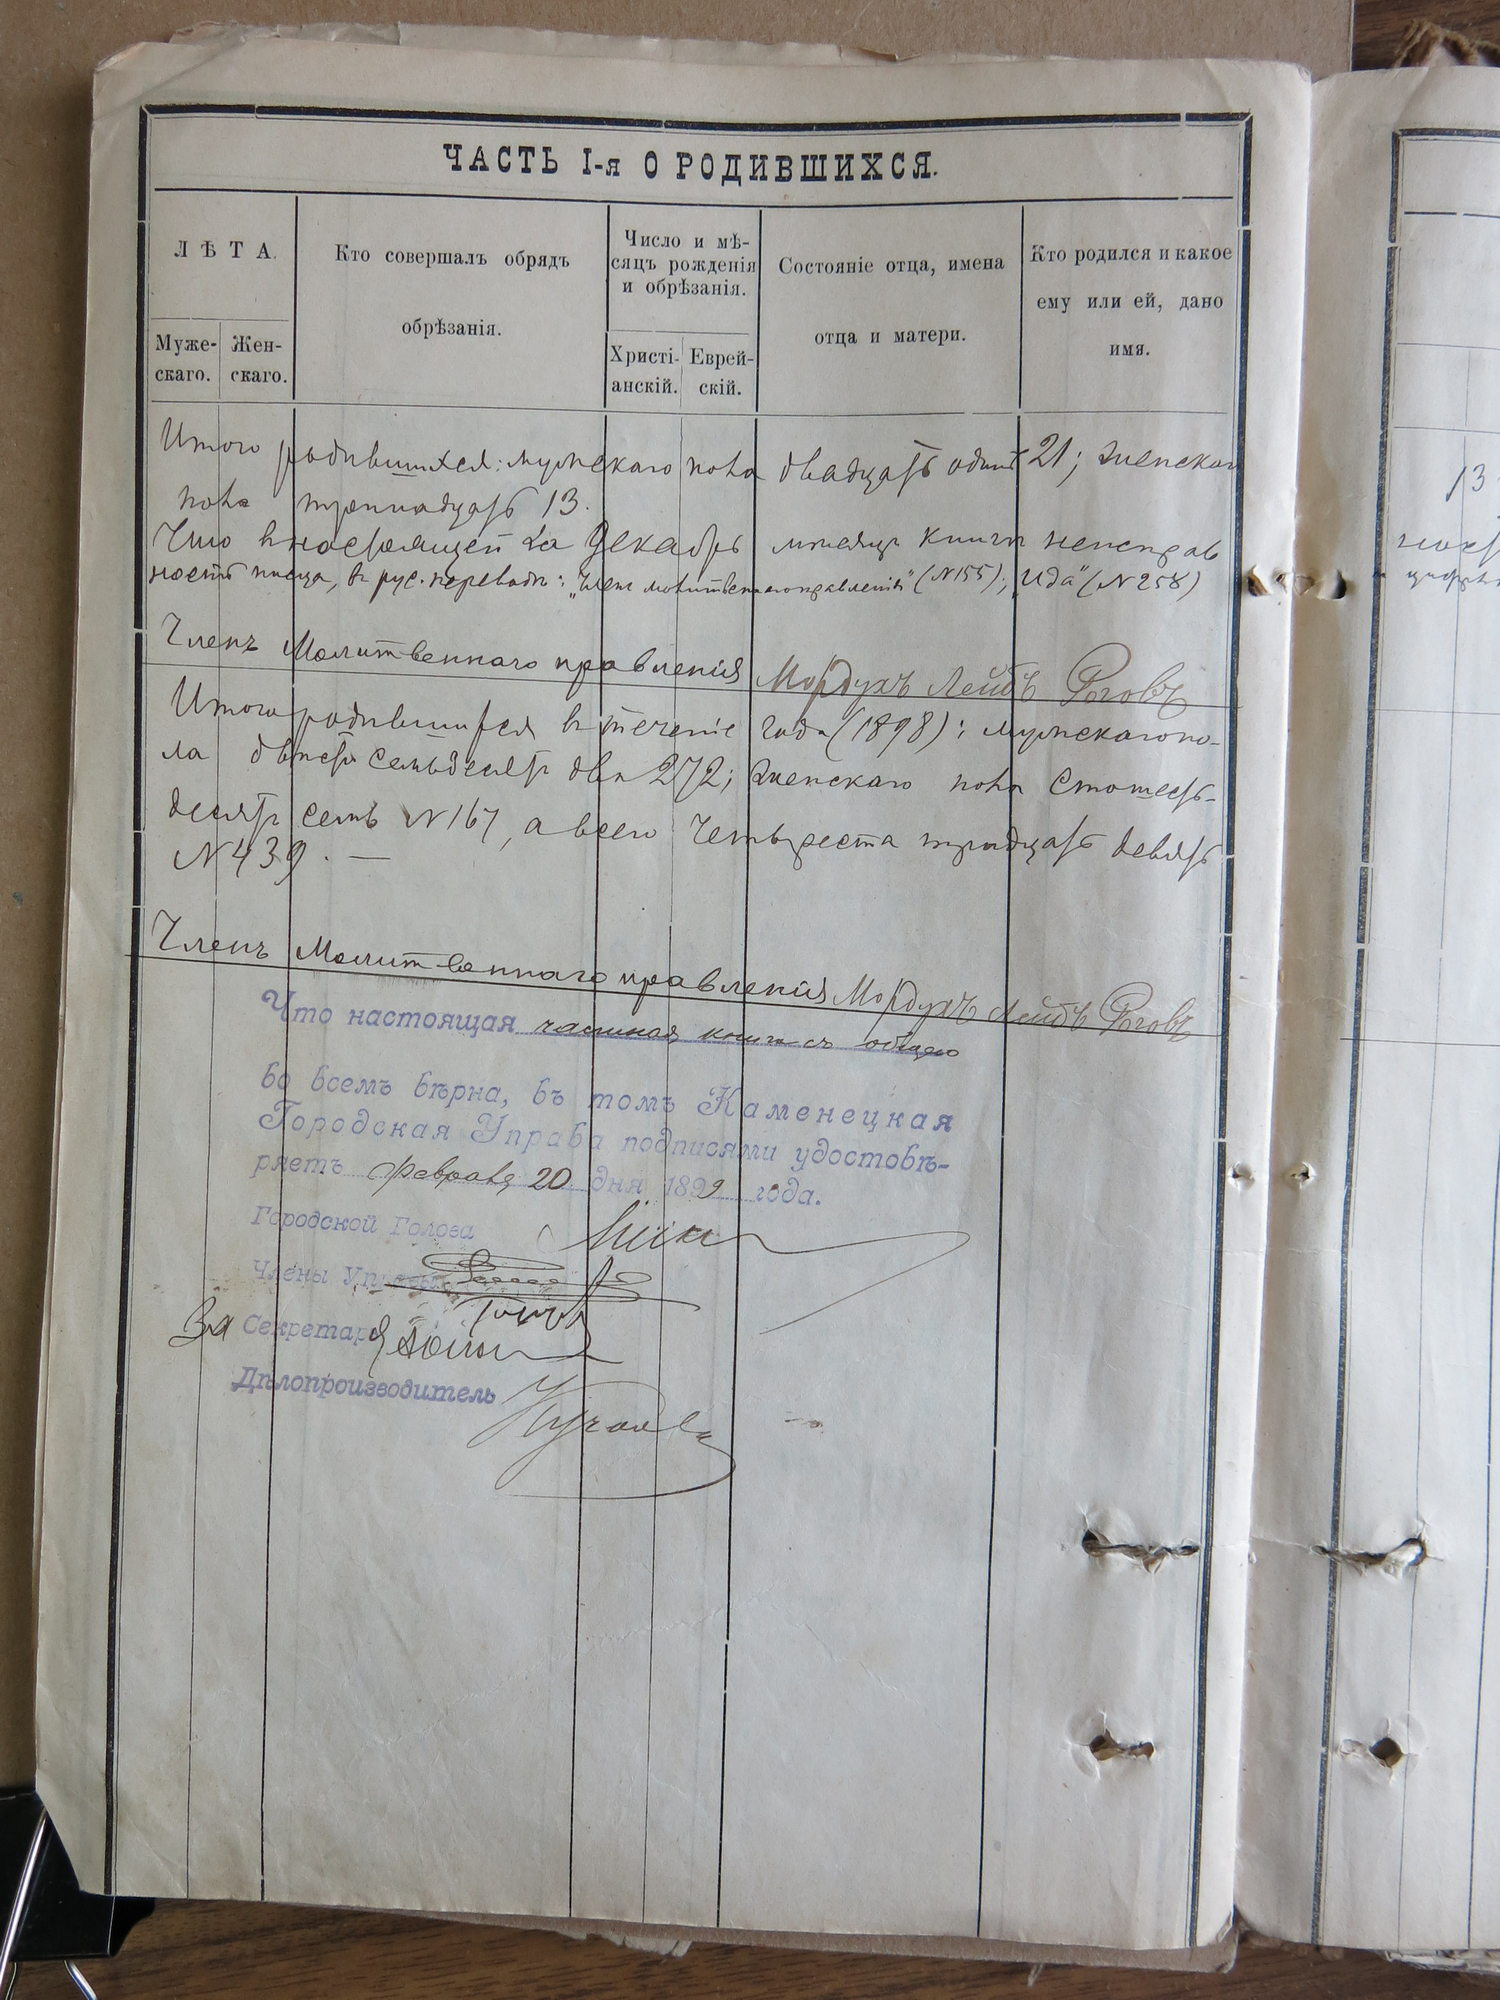 ЧАСТЬ I-я О РОДИВШИХСЯ.
ЛѢТА.
Муже-
скаго.
Жен-
скаго.
Кто совершалъ обрядъ
обрѣзанія.
Число и мѣ-
сяцъ рожденія
и обрѣзанія.
Христі-
анскій.
Еврей-
скій.
Состояніе отца, имена
отца и матери.
Кто родился и какое
ему или ей, дано
имя.
Итого родившихся: мужскаго пола двадцать одинъ 21; женскаго
пола тринадцать 13.
Что в настоящей за Декабрь мѣсяцъ книги неисправ
ность писца, въ рус. переводѣ: „Членъ молитвеннаго правленія" (N155); „Ида" (N258)
Членъ Молитвеннаго правленія Мордухъ Лейбъ Роговъ
Итого родившихся в теченіе года (1898): мужскаго по-
ла двѣсти семьдесятъ два 272; женскаго пола стошесть-
десятъ семь N167, а всего четыреста тридцать девять
N439. —
Членъ Молитвеннаго правленія Мордухъ Лейбъ Роговъ
Что настоящая книга съ
во всемъ вѣрна, въ томъ Каменецкая
Городская Управа подписями удостовѣ-
ряетъ февраля 20 дня 1899 года.
Городской Голова
Члены Управы
За Секретаря
Дѣлопроизводитель
13